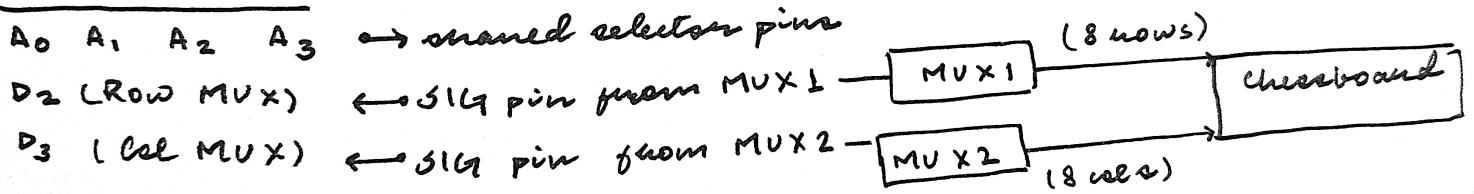 A0 A1 A2 A3 → shared selector pins
(8 rows)
D2 (Row MUX) ← SIG pin from MUX1 — MUX1
chessboard
D3 (Col MUX) ← SIG pin from MUX2 — MUX2
(8 cols)